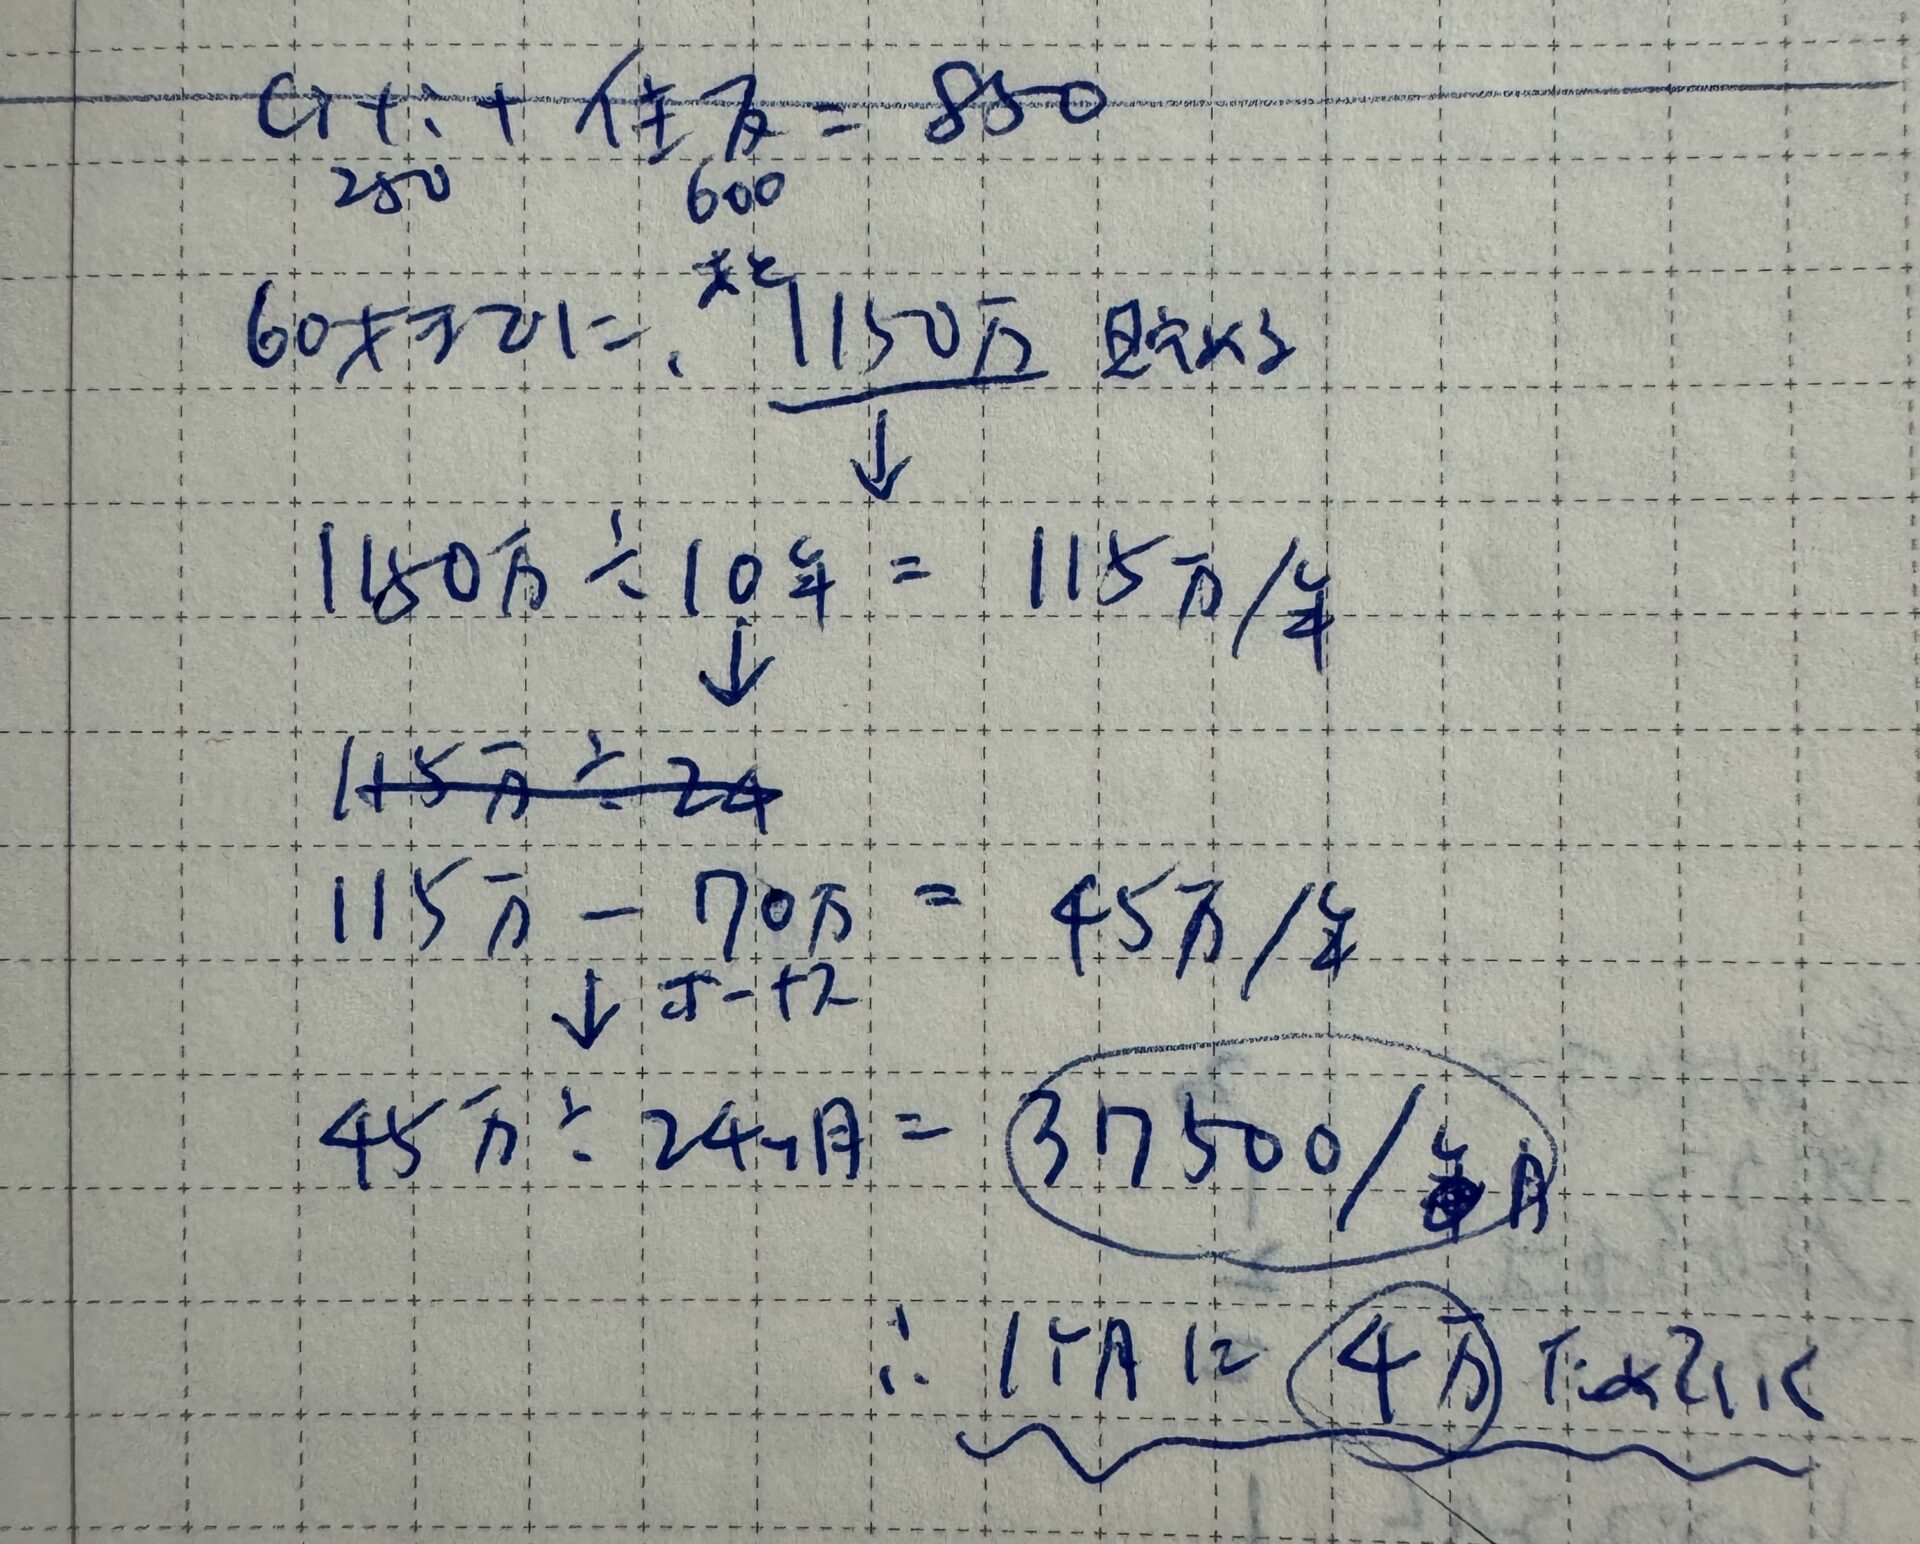 + 住友 = 850
250 600
あと
60才までに、1150万 貯める
↓
1150万 ÷ 10年 = 115万/年
↓
115万 ÷ 24
115万 − 70万 = 45万/年
↓ ボーナス
45万 ÷ 24ヶ月 = 37500/月
∴ 1ヶ月に 4万 ためていく